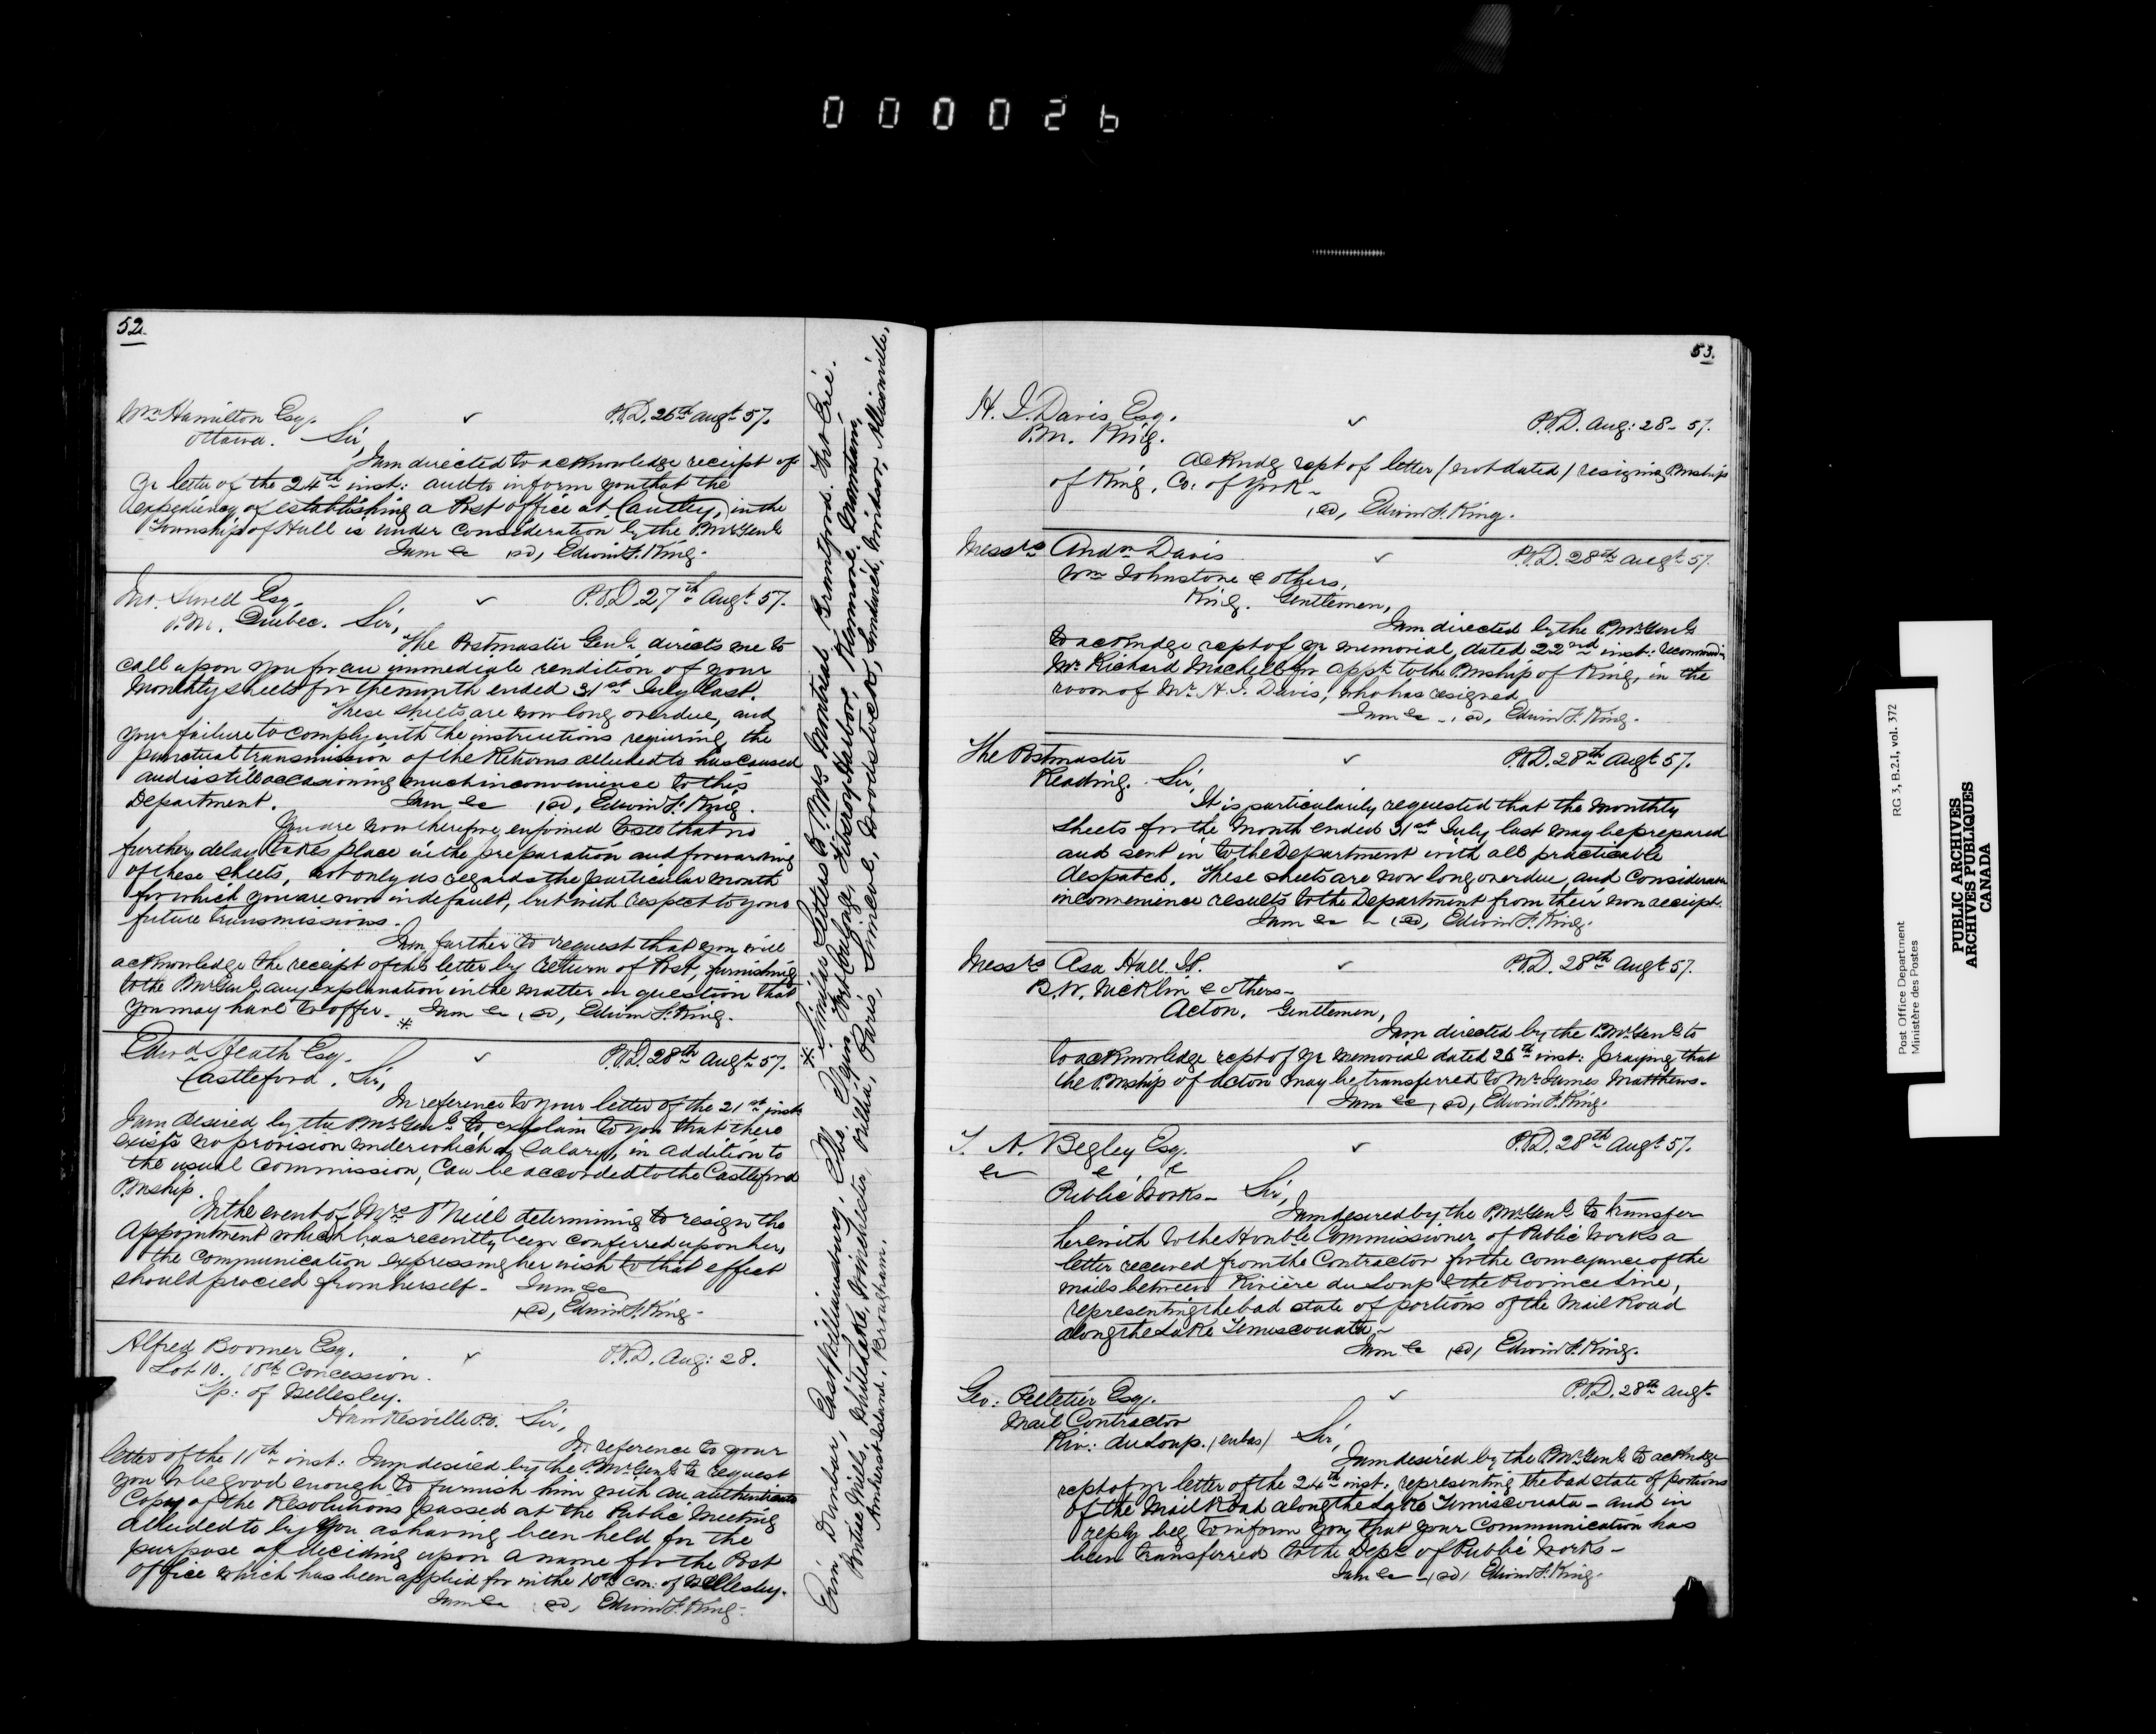 000026
52.
Wm Hamilton Esq.
P.O.D. 26th Augt 57.
Ottawa. Sir,
I am directed to acknowledge receipt of
yr letter of the 24th inst: and to inform you that the
expediency of establishing a Post Office at Cantley, in the
Township of Hull is under consideration by the P.Mr Genl
I am &c sd, Edwin F. King.
P.O.D. 27th Augt 57.
P.M. Quebec. Sir,
The Postmaster Genl. directs me to
call upon you for an immediate rendition of your
Monthly sheets for the month ended 31st July last.
These sheets are now long overdue, and
your failure to comply with the instructions requiring the
punctual transmission of the Returns alluded to has caused
and is still occasioning much inconvenience to this
Department. I am &c sd, Edwin F. King.
You are now therefore, enjoined to see that no
further delay takes place in the preparation and forwarding
of these sheets, not only as regards the particular month
for which you are now in default, but with respect to your
future transmissions.
I am further to request that you will
acknowledge the receipt of this letter by return of Post, furnishing
to the P.Mr Genl any explanation in the matter in question that
you may have to offer. * I am &c, sd, Edwin F. King.
Edwd Heath Esq.
P.O.D. 28th Augt 57.
Castleford. Sir,
In reference to your letter of the 21st inst
I am desired by the P.Mr Genl to explain to you that there
exists no provision under which a Salary, in addition to
the usual Commission, can be accorded to the Castleford
P.Mship.
In the event of Mrs O'Neill determining to resign the
Appointment which has recently been conferred upon her,
the communication expressing her wish to that effect
should proceed from herself. I am &c
sd, Edwin F. King.
Alfred Boomer Esq.
P.O.D. Aug: 28.
Lot 10. 10th Concession.
Tp: of Wellesley.
Hawkesville P.O. Sir,
In reference to your
letter of the 11th inst: I am desired by the P.Mr Genl to request
you to be good enough to furnish him with an authenticate
Copy of the Resolutions passed at the Public Meeting
alluded to by you as having been held for the
purpose of deciding upon a name for the Post
Office which has been applied for in the 10th Con: of Wellesley.
I am &c sd, Edwin F. King.
* Similar Letters to P.Mrs Montreal, Brantford, Fort Erié.
Erin, Dunbar, East Williamsburg, Elgin, Fort Coulonge, Hillsboro Harbor, Kenmore,
Pontiac Mills, White Lake, Winchester, Orillia, Paris, Simcoe, Woodstock, Sandwich, Windsor, Allisonville,
Amherst Island, Brougham.
53.
H. I. Davis Esq.
P.O.D. Aug: 28 - 57.
P.M. King.
Ackndg rcpt of letter (not dated) resigning P.Mship
of King, Co: of York -
sd, Edwin F. King.
Messrs Andw Davis
P.O.D. 28th Augt 57.
Wm Johnstone & others,
King. Gentlemen,
I am directed by the P.Mr Genl
to ackndge rcpt of yr memorial, dated 22nd inst: recommending
Mr Richard Machell for appt to the P.Mship of King, in the
room of Mr H. I. Davis, who has resigned
I am &c - sd, Edwin F. King.
The Postmaster
P.O.D. 28th Augt 57.
Reading. Sir,
It is particularily requested that the Monthly
Sheets for the Month ended 31st July last may be prepared
and sent in to the Department with all practicable
despatch. These sheets are now long overdue, and considerable
inconvenience results to the Department from their non receipt.
I am &c - sd, Edwin F. King.
Messrs Asa Hall
P.O.D. 28th Augt 57.
B.W. Nicklin & others -
Acton. Gentlemen,
I am directed by the P.Mr Genl to
to acknowledge rcpt of yr memorial dated 26th inst: praying that
the P.Mship of Acton may be transferred to Mr James Matthews.
I am &c, sd, Edwin F. King.
T. A. Begley Esq.
P.O.D. 28th Augt 57.
&c &c &c
Public Works - Sir,
I am desired by the P.Mr Genl to transfer
herewith to the Honble Commissioner of Public Works a
letter received from the Contractor for the conveyance of the
mails between Rivière du Loup & the Province Line,
representing the bad state of portions of the Mail Road
along the Lake Temiscouata -
I am &c sd, Edwin F. King.
Geo: Pelletier Esq.
P.O.D. 28th Augt
Mail Contractor
Riv: du Loup. (en bas) Sir,
I am desired by the P.Mr Genl to ackndge
rcpt of yr letter of the 24th inst, representing the bad state of portions
of the Mail Road along the Lake Temiscouata - and in
reply beg to inform you, that your Communication has
been transferred to the Dept of Public Works -
I am &c - sd, Edwin F. King.
Post Office Department RG 3, B.2.I, vol. 372
Ministère des Postes
PUBLIC ARCHIVES
ARCHIVES PUBLIQUES
CANADA